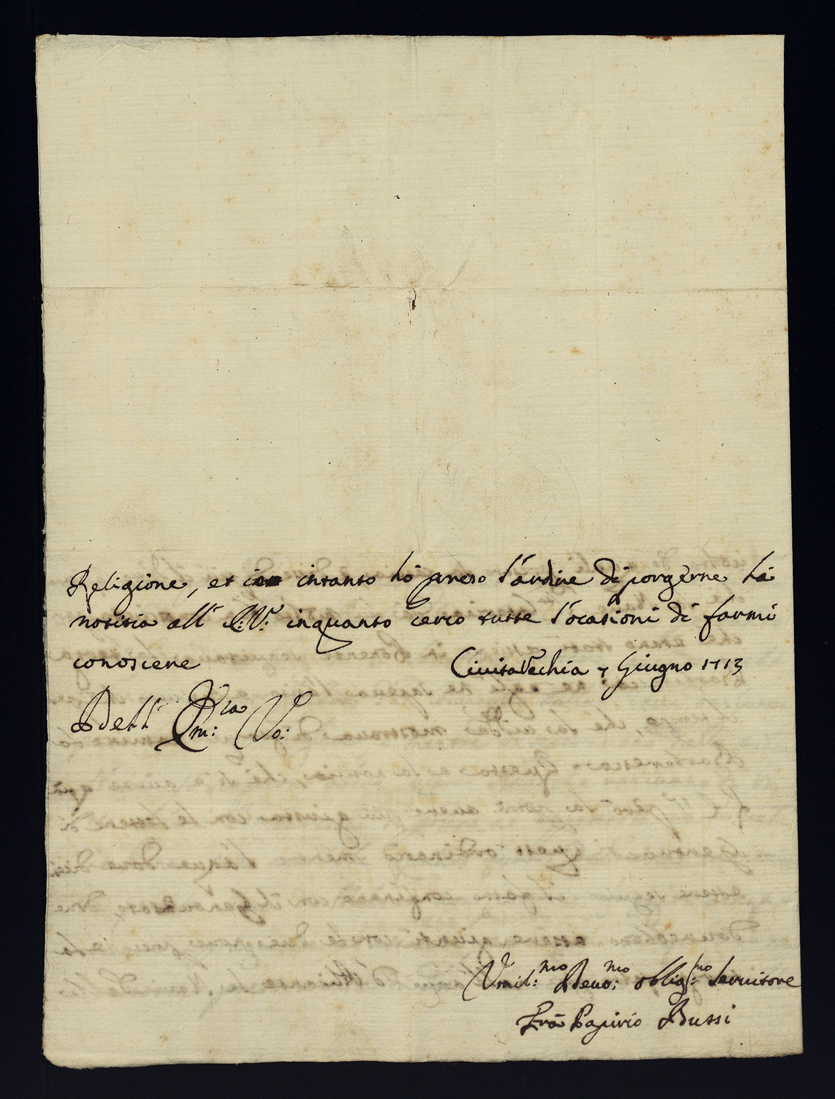 Religione, et intanto hó preso l'ardire di porgerne la
notitia all' E.V. inquanto cerco tutte l'ocasioni di farmi
conoscere Civitavechia 7 Giugno 1713
Dell' Em:za Vo:
Vmil:mo Devo:mo oblig:mo servitore
Frà Papirio Bussi